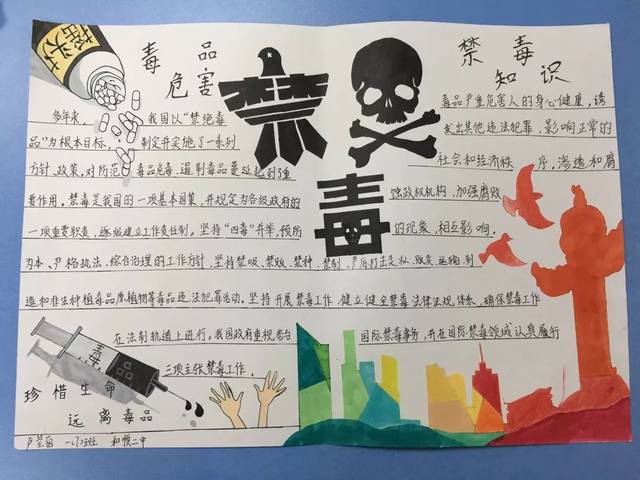 毒品
危害
禁毒
禁毒
知识
多年来，我国以“禁绝毒
品”为根本目标，制定并实施了一系列
方针、政策，对防范毒品危毒、遏制毒品蔓延起到了重
要作用。禁毒是我国的一项基本国策，并规定为各级政府的
一项重要职责，逐级建立工作责任制。坚持“四毒”并举，预防
为本、严格执法、综合治理的工作方针，坚持禁吸、禁贩、禁种、禁制，严厉打击走私、贩卖、运输、制
造和非法种植毒品原植物等毒品违法犯罪活动。坚持开展禁毒工作，健立健全禁毒法律法规体系，确保禁毒工作
在法制轨道上进行，我国政府重视参与国际禁毒事务，并在国际禁毒领域认真履行
三项主张禁毒工作。
毒品严重危害人的身心健康，诱
发出其他违法犯罪，影响正常的
社会和经济秩序，渗透和腐
蚀政权机构，加强腐败
的现象，相互影响。
毒
珍惜生命
远离毒品
一(7)班 和顺二中